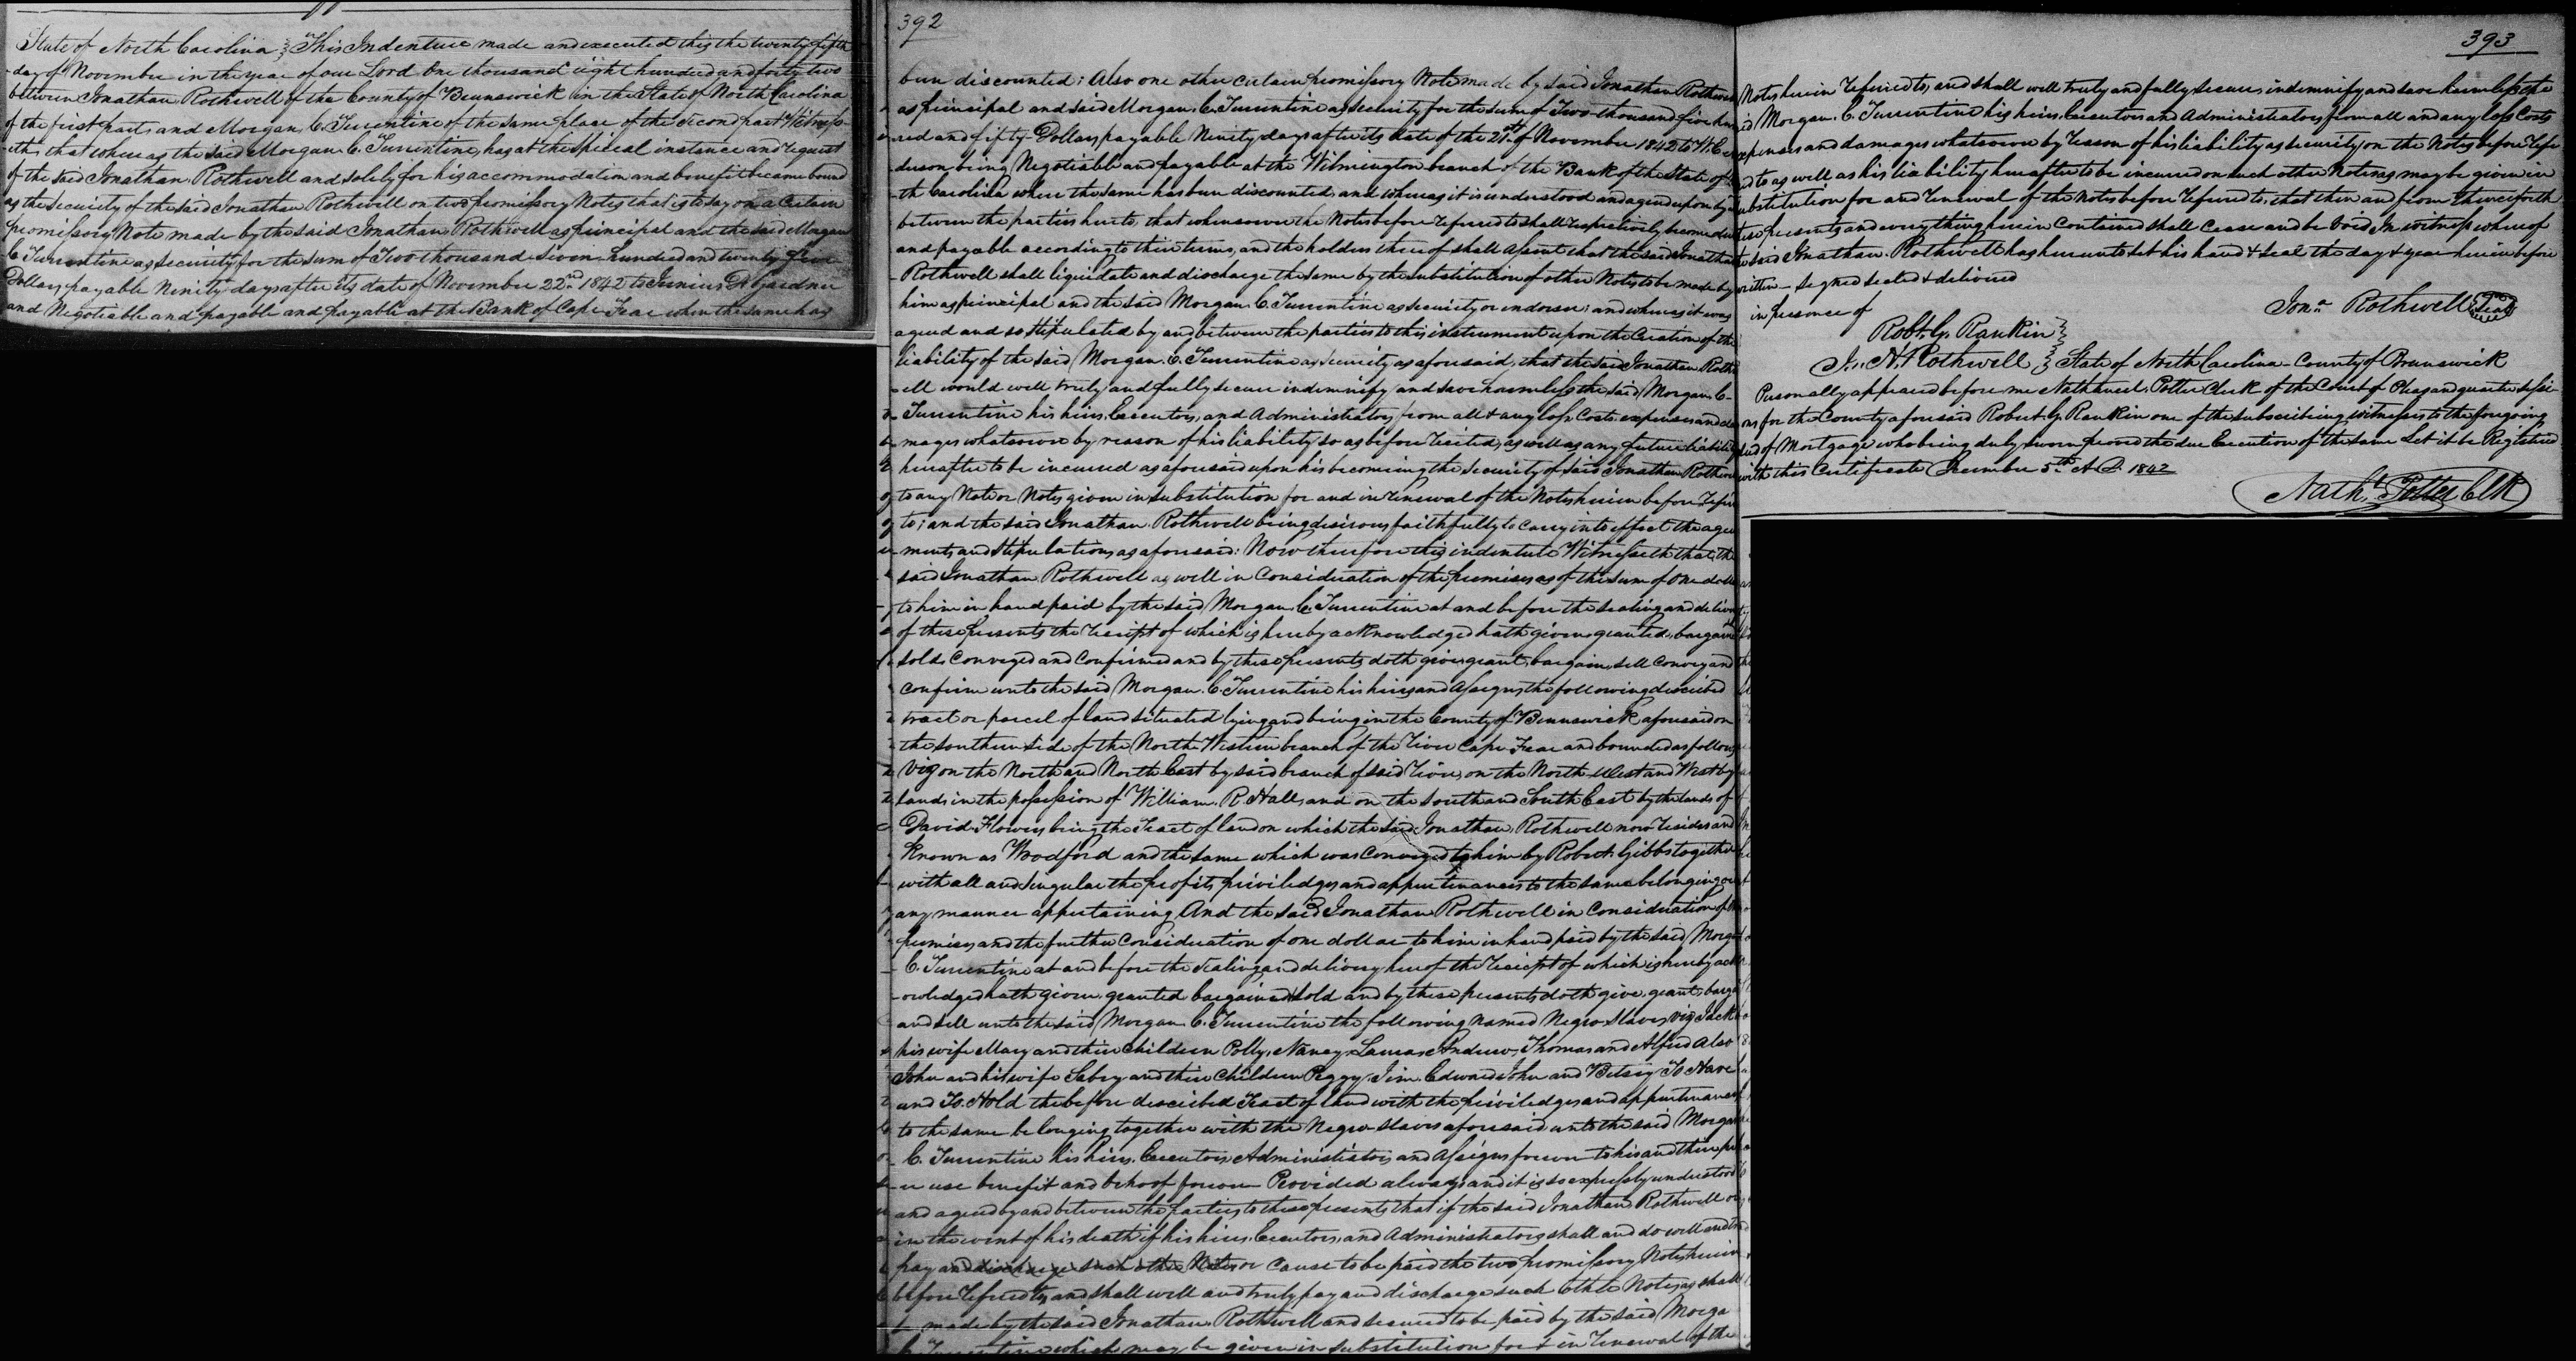 State of North Carolina } This Indenture made and executed this the twenty fifth
day of November in the year of our Lord One thousand eight hundred and forty two
between Jonathan Rothwell of the County of Brunswick in the State of North Carolina
of the first part, and Morgan C. Turrentine of the same place of the second part Witness-
-eth, that whereas the said Morgan C. Turrentine, has at the special instance and request
of the said Jonathan Rothwell and solely for his accommodation and benefit became bound
as the security of the said Jonathan Rothwell on two promissory Notes that is to say on a Certain
promissory Note made by the said Jonathan Rothwell as principal and the said Morgan
C Turrentine as security for the sum of Two thousand Seven hundred and twenty five
Dollars payable Ninety days after its date of November 22nd 1842 to Junius D. Gardner
and Negotiable and payable and payable at the Bank of Cape Fear when the same has
392
been discounted; Also one other certain promissory Note made by said Jonathan Rothwell
as principal and said Morgan C. Turrentine as security for the sum of Two thousand five hun
red and fifty Dollars payable Ninety days after its date of the 21st of November 1842 to
being Negotiable and payable at the Wilmington branch of the Bank of the State of
-th Carolina where the same has been discounted, and whereas it is understood and agreed upon by
between the parties hereto, that whensoever the Notes before referred to shall respectively become due
and payable according to their terms, and the holders thereof shall assent that the said Jonathan
Rothwell shall liquidate and discharge the same by the substitution of other Notes to be made by
him as principal and the said Morgan C. Turrentine as security or endorser; and whereas it was
agreed and so stipulated by and between the parties to this instrument upon the Creation of the
liability of the said Morgan C. Turrentine as security as aforesaid, that the said Jonathan Roth
-ell would well truly and fully secure indemnify and save harmless the said Morgan C-
Turrentine his heirs, Executors, and Administrators from all & any loss Costs expenses and da
mages whatsoever by reason of his liability so as before recited, as well as any future liability
hereafter to be incurred as aforesaid upon his becoming the Security of said Jonathan Rothwell
to any Note or Notes given in substitution for and in renewal of the Notes herein before refer
to; and the said Jonathan Rothwell being desirous faithfully to carry into effect the agree
ments and stipulations as aforesaid: Now therefore this indenture Witnesseth that the
said Jonathan Rothwell as well in Consideration of the premises as of the sum of One dollar
to him in hand paid by the said Morgan C. Turrentine at and before the sealing and deliver
of these presents the receipt of which is hereby acknowledged hath given granted, bargained
sold, Conveyed and Confirmed and by these presents doth give, grant, bargain, sell Convey and
Confirm unto the said Morgan C. Turrentine his heirs and Assigns, the following described
tract or parcel of land situated lying and being in the County of Brunswick aforesaid on
the southern side of the North Western branch of the river Cape Fear and bounded as follows
viz on the North and North East by said branch of said river, on the North West and West by
lands in the possession of William R. Hall, and on the South and South East by the lands of
David Flowers being the Tract of land on which the said Jonathan Rothwell now resides and
Known as Woodford and the same which was Conveyed to him by Robert Gibbs together
with all and singular the profits, priviledges and appurtenances to the same belonging or
any manner appertaining And the said Jonathan Rothwell in Consideration of the
premises and the further Consideration of one dollar to him in hand paid by the said Morgan
C. Turrentine at and before the sealing and delivery hereof the receipt of which is hereby ack
-owledged hath given granted bargained & sold and by these presents doth give, grant, barga
and sell unto the said Morgan C. Turrentine the following named Negro Slaves, viz Jack
his wife Mary and their Children Polly, Nancy, Andrew, Thomas and Alfred Also
John and his wife Sabry and their Children Peggy, Jim, Edward, John and Betsey To Have
and To Hold the before described Tract of land with the priviledges and appurtenances
to the same belonging together with the Negro slaves aforesaid unto the said Morgan
C. Turrentine his heirs, Executors, Administrators and Assigns forever to his and their prop
-er use benefit and behoof forever Provided always and it is so expressly understood
and agreed by and between the parties to these presents that if the said Jonathan Rothwell or
in the event of his death if his heirs, Executors, and Administrators shall and do well and tr
pay and discharge such other Notes or cause to be paid the two promissory Notes herein
before referred to, and shall well and truly pay and discharge such other Notes, as shall
be made by the said Jonathan Rothwell and secured to be paid by the said Morga
C. Turrentine which may be given in substitution for & in renewal of the
393
Notes herein referred to, and shall well truly and fully secure, indemnify and save harmless the
id Morgan C. Turrentine his heirs, Executors and Administrators from all and any loss Costs
expenses and damages whatsoever by reason of his liability as security on the Notes before refe
ed to as well as his liability hereafter to be incurred on such other Notes as may be given in
substitution for and renewal of the Notes before referred to, that then and from thenceforth
these presents and everything herein Contained shall Cease and be void In witness whereof
the said Jonathan Rothwell has hereunto set his hand & seal the day & year herein before
written - Signed sealed & delivered
in presence of
Jona. Rothwell Seal
Robt. G. Rankin }
J. A. Rothwell } State of North Carolina - County of Brunswick
Personally appeared before me Nathaniel Potter Clerk of the Court of Pleas and quarter Sessi-
ns for the County aforesaid Robert G. Rankin one of the subscribing witnesses to the foregoing
deed of Mortgage who being duly sworn proved the due Execution of the same Let it be Registered
with this Certificate December 5th A D. 1842
Nathl. Potter Clk